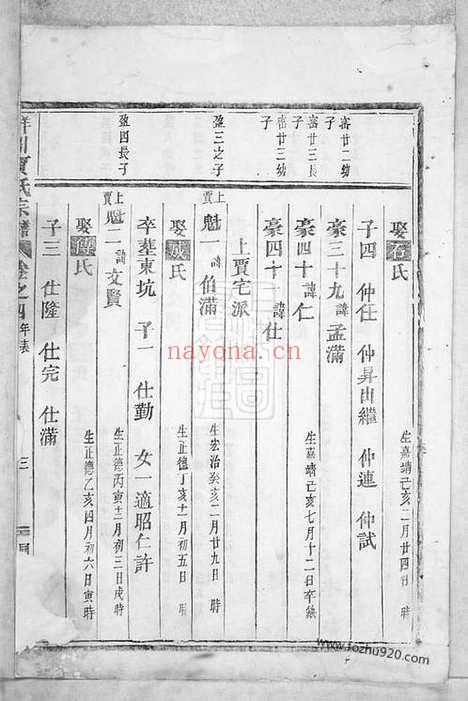 娶石氏
生嘉靖己亥二月廿四日 時
子四 仲任 仲昇出繼 仲連 仲試
密廿二幼子
豪三十九諱孟滿
密廿三長子
豪四十諱仁
生嘉靖己亥七月十二日卒缺
密廿三幼子
豪四十一諱仕
上賈宅派
盈三之子
上賈
魁一諱伯滿
生宏治癸亥二月廿九日 時
娶戚氏
生正德丁亥十一月初五日 時
卒塟東坑 子一 仕勤 女一適昭仁許
盈四長子
上賈
魁二諱文賢
生正德丙寅十二月初三日戌時
娶傅氏
生正德乙亥四月初六日寅時
子三 仕隆 仕完 仕滿
賈氏宗譜
卷之四 年表
三
nayona.cn
www.fozhu920.com